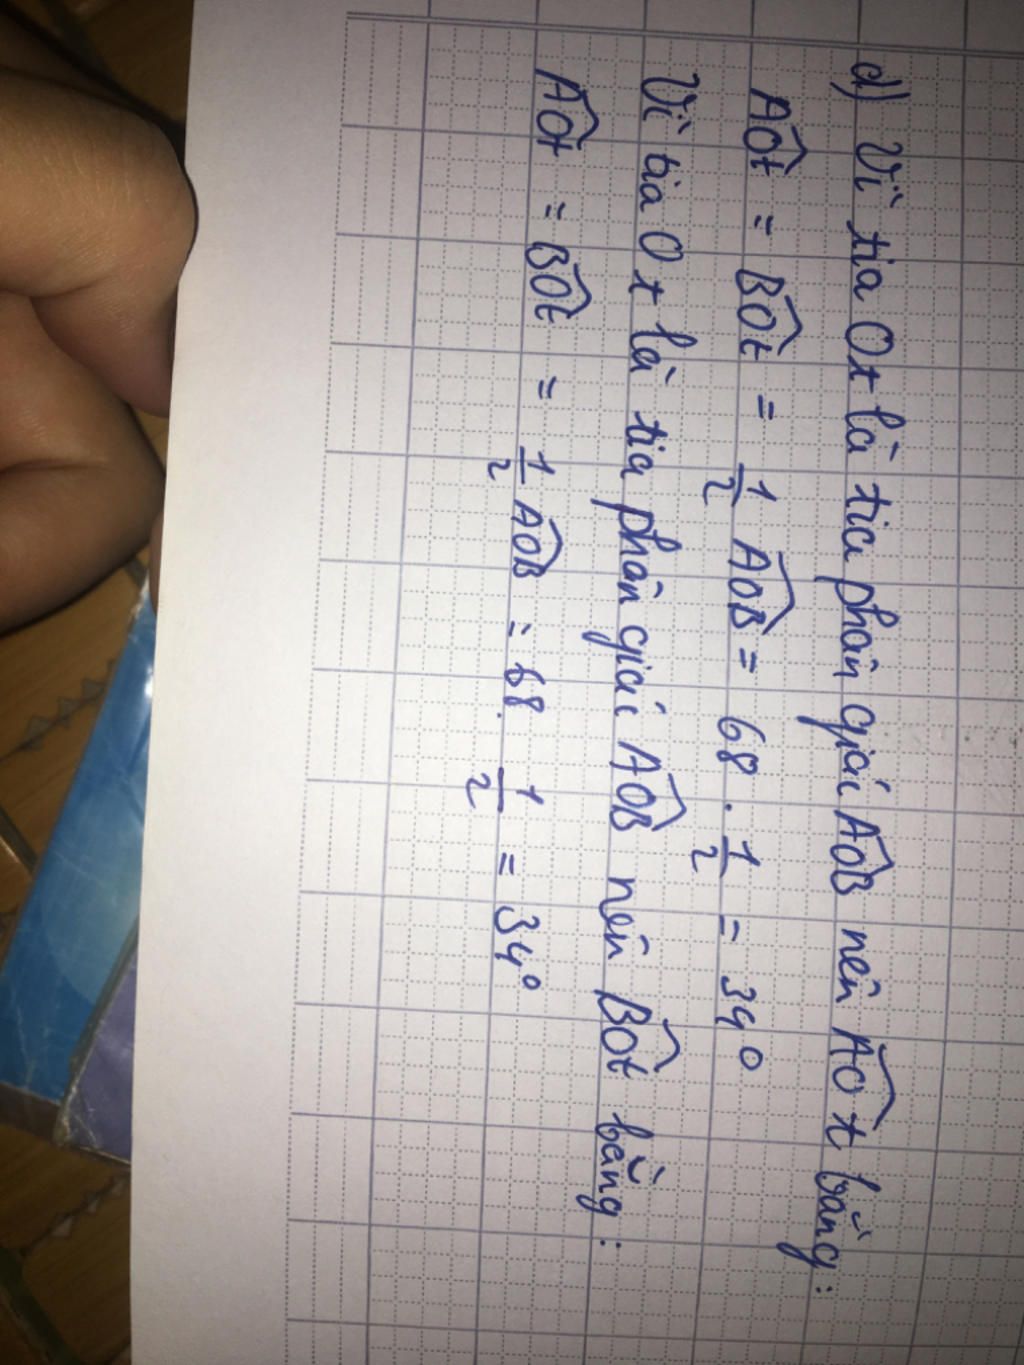 d) Vì tia Ot là tia phân giác AÔB nên AÔt bằng:
AÔt = BÔt = 1/2 AÔB = 68 . 1/2 = 34°
Vì tia Ot là tia phân giác AÔB nên BÔt bằng:
AÔt = BÔt = 1/2 AÔB = 68. 1/2 = 34°